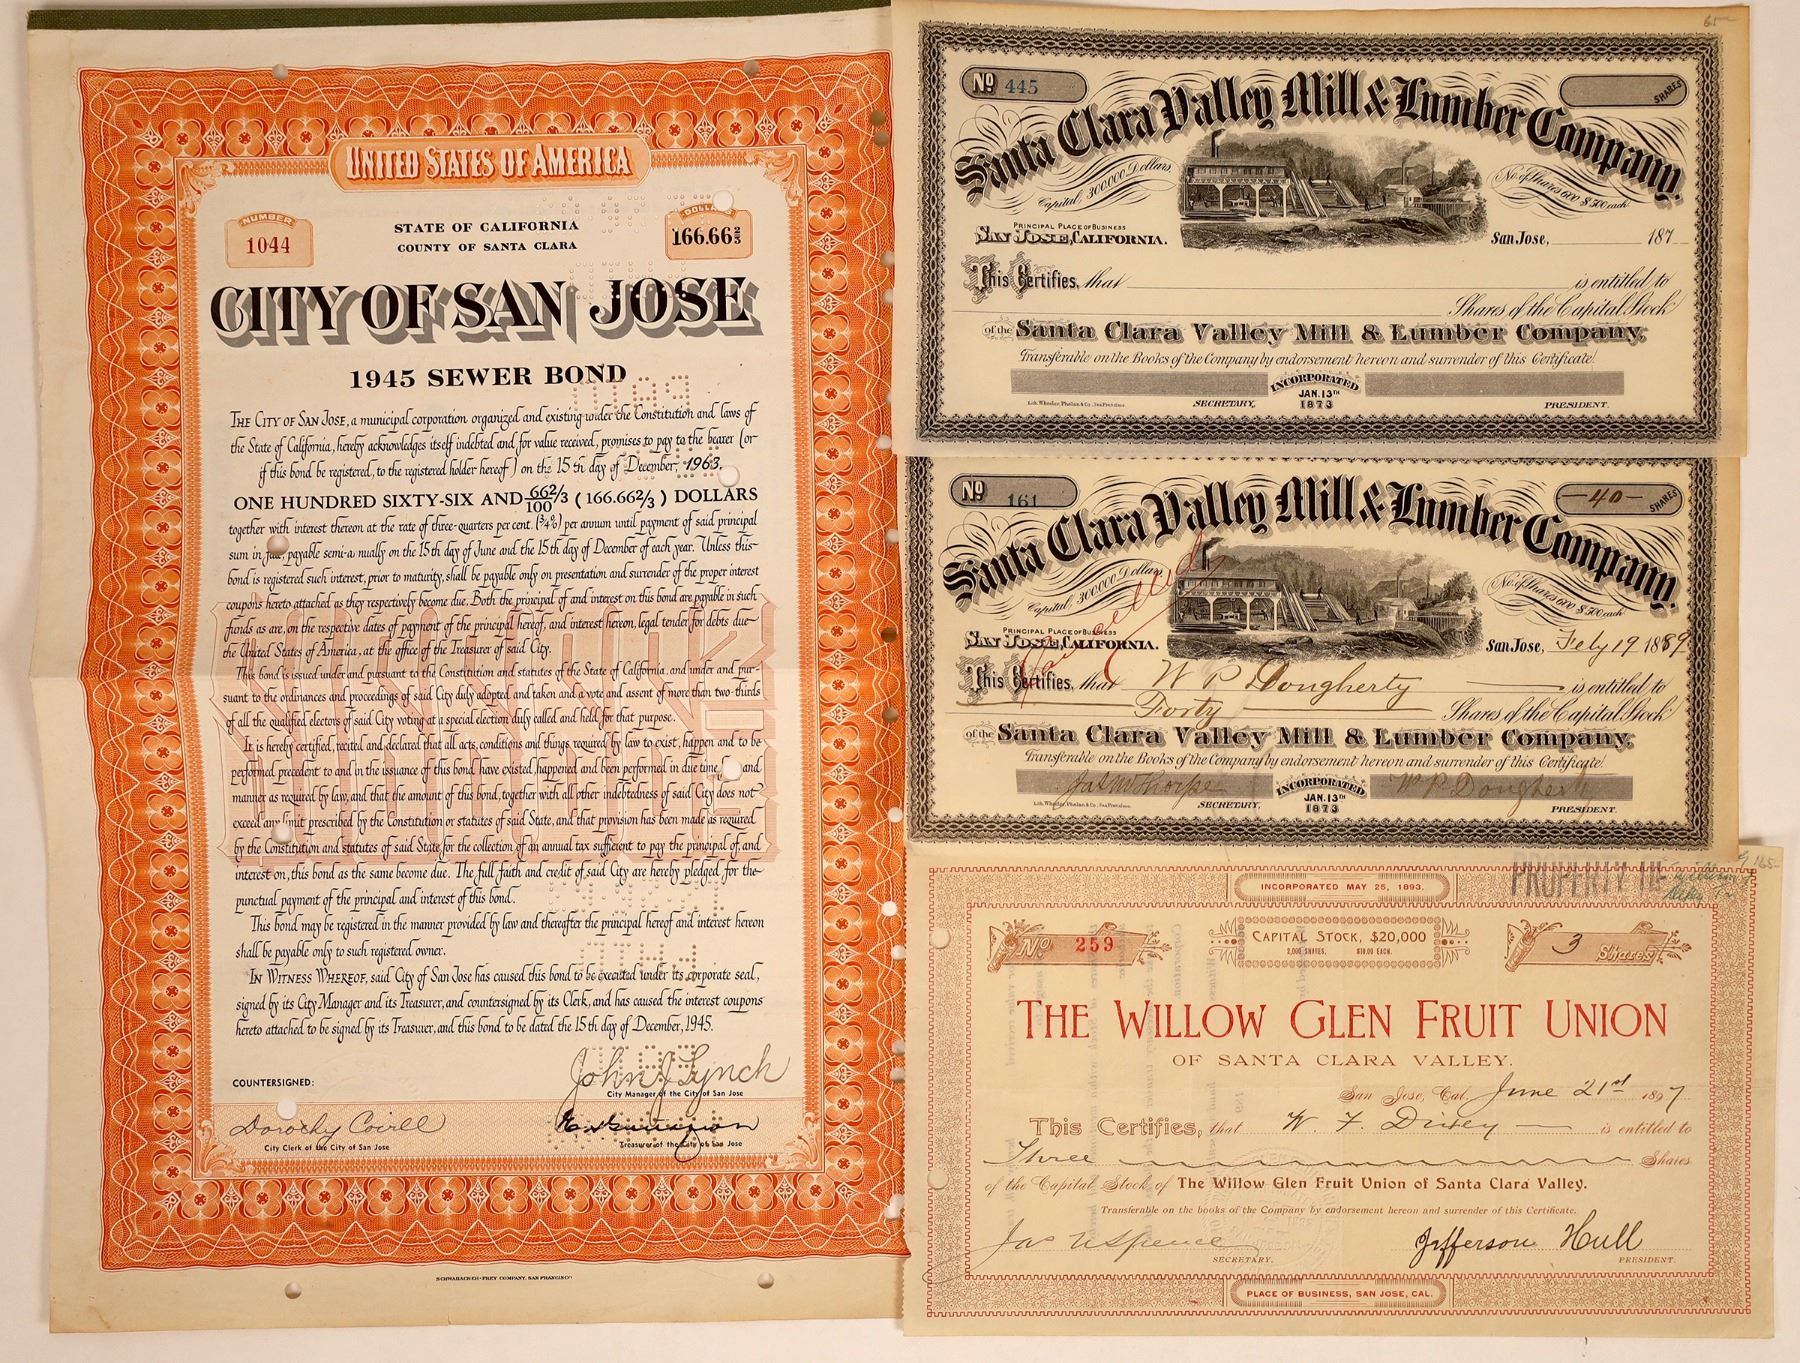 UNITED STATES OF AMERICA
NUMBER
1044
STATE OF CALIFORNIA
COUNTY OF SANTA CLARA
DOLLARS
166.66 2/3
CITY OF SAN JOSE
1945 SEWER BOND
THE CITY OF SAN JOSE, a municipal corporation organized and existing under the Constitution and laws of
the State of California, hereby acknowledges itself indebted and for value received, promises to pay to the bearer (or
if this bond be registered, to the registered holder hereof) on the 15th day of December, 1963,
ONE HUNDRED SIXTY-SIX AND 66 2/3/100 (166.66 2/3) DOLLARS
together with interest thereon at the rate of three-quarters per cent. (3/4%) per annum until payment of said principal
sum in full, payable semi-annually on the 15th day of June and the 15th day of December of each year. Unless this
bond is registered such interest, prior to maturity, shall be payable only on presentation and surrender of the proper interest
coupons hereto attached as they respectively become due. Both the principal of and interest on this bond are payable in such
funds as are, on the respective dates of payment of the principal hereof, and interest hereon, legal tender for debts due
the United States of America, at the office of the Treasurer of said City.
This bond is issued under and pursuant to the Constitution and statutes of the State of California, and under and pur-
suant to the ordinances and proceedings of said City duly adopted and taken and a vote and assent of more than two-thirds
of all the qualified electors of said City voting at a special election duly called and held for that purpose.
It is hereby certified, recited and declared that all acts, conditions and things required by law to exist, happen and to be
performed precedent to and in the issuance of this bond have existed, happened and been performed in due time, and
manner as required by law, and that the amount of this bond, together with all other indebtedness of said City does not
exceed any limit prescribed by the Constitution or statutes of said State, and that provision has been made as required
by the Constitution and statutes of said State, for the collection of an annual tax sufficient to pay the principal of, and
interest on, this bond as the same become due. The full faith and credit of said City are hereby pledged for the
punctual payment of the principal and interest of this bond.
This bond may be registered in the manner provided by law and thereafter the principal hereof and interest hereon
shall be payable only to such registered owner.
IN WITNESS WHEREOF, said City of San Jose has caused this bond to be executed under its corporate seal,
signed by its City Manager and its Treasurer, and countersigned by its Clerk, and has caused the interest coupons
hereto attached to be signed by its Treasurer, and this bond to be dated the 15th day of December, 1945.
John J Lynch
City Manager of the City of San Jose
COUNTERSIGNED:
City Clerk of the City of San Jose
Treasurer of the City of San Jose
SCHWABACHER-FREY COMPANY, SAN FRANCISCO
65
No 445
SHARES
Santa Clara Valley Mill & Lumber Company.
Capital, 300,000 Dollars.
No. of Shares 600 $500 each
PRINCIPAL PLACE OF BUSINESS
SAN JOSE, CALIFORNIA.
San Jose, 187
This Certifies, that is entitled to
Shares of the Capital Stock
of the Santa Clara Valley Mill & Lumber Company,
Transferable on the Books of the Company by endorsement hereon and surrender of this Certificate.
INCORPORATED
JAN. 13TH
1873
Lith. Wheelan, Phelan & Co., San Francisco.
SECRETARY,
PRESIDENT.
No 161
40
SHARES
Santa Clara Valley Mill & Lumber Company.
Capital, 300,000 Dollars
No. of Shares 600 $500 each
Cancelled
PRINCIPAL PLACE OF BUSINESS
SAN JOSE, CALIFORNIA.
San Jose, Feby 19 1889
This Certifies, that W P Dougherty is entitled to
Forty Shares of the Capital Stock
of the Santa Clara Valley Mill & Lumber Company,
Transferable on the Books of the Company by endorsement hereon and surrender of this Certificate.
Jas W Thorpe
W P Dougherty
INCORPORATED
JAN. 13TH
1873
Lith. Wheelan, Phelan & Co., San Francisco.
SECRETARY,
PRESIDENT.
PROPERTY OF
165
INCORPORATED MAY 25, 1893.
No. 259
CAPITAL STOCK, $20,000
2,000 SHARES. $10.00 EACH.
3 Shares
THE WILLOW GLEN FRUIT UNION
OF SANTA CLARA VALLEY.
San Jose, Cal. June 21st 1897
This Certifies, that W F is entitled to
Three Shares
of the Capital Stock of The Willow Glen Fruit Union of Santa Clara Valley.
Transferable on the books of the Company by endorsement hereon and surrender of this Certificate.
Jefferson Hull
SECRETARY.
PRESIDENT.
PLACE OF BUSINESS, SAN JOSE, CAL.